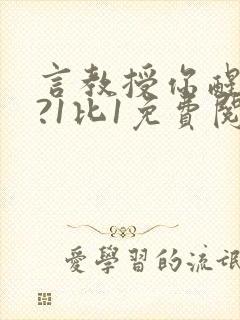 言教授你醒
?1比1免費閱
愛學習的流氓